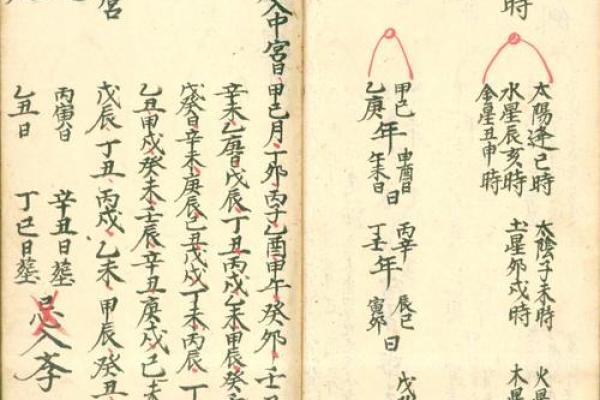 時
太陽逢巳時 太陰子未時 火星
水星辰亥時 土星卯戌時 木星
金星丑申時
甲己 申酉日
乙庚 年 午未日 日
丙辛 辰巳
丁壬 年 寅卯 日
戊
入中宮日甲巳月丁卯丙子乙酉甲午癸卯壬
辛未乙庚日戊辰丁丑丙戌乙未甲辰癸
戊癸日辛未庚辰己丑戊戌丁未丙辰丁
乙丑甲戌癸未壬辰辛丑庚戌己未
宮 戊辰丁丑丙戌乙未甲辰癸丑
丙寅日 辛丑日葬
乙丑日 丁巳日葬 忌入